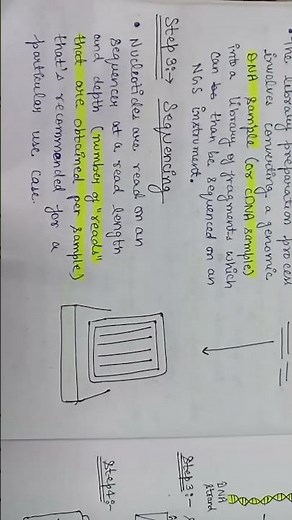 • The library preparation process
involves converting a genomic
DNA sample (or cDNA sample)
into a library of fragments which
can than be sequenced on an
NGS instrument.
Step 3:→ Sequencing
• Nucleotides are read on an
sequencer at a read length
and depth (number of "reads"
that are obtained per sample)
that's recommended for a
particular use case.
DNA
strand
Step 3:-
Step 4:-